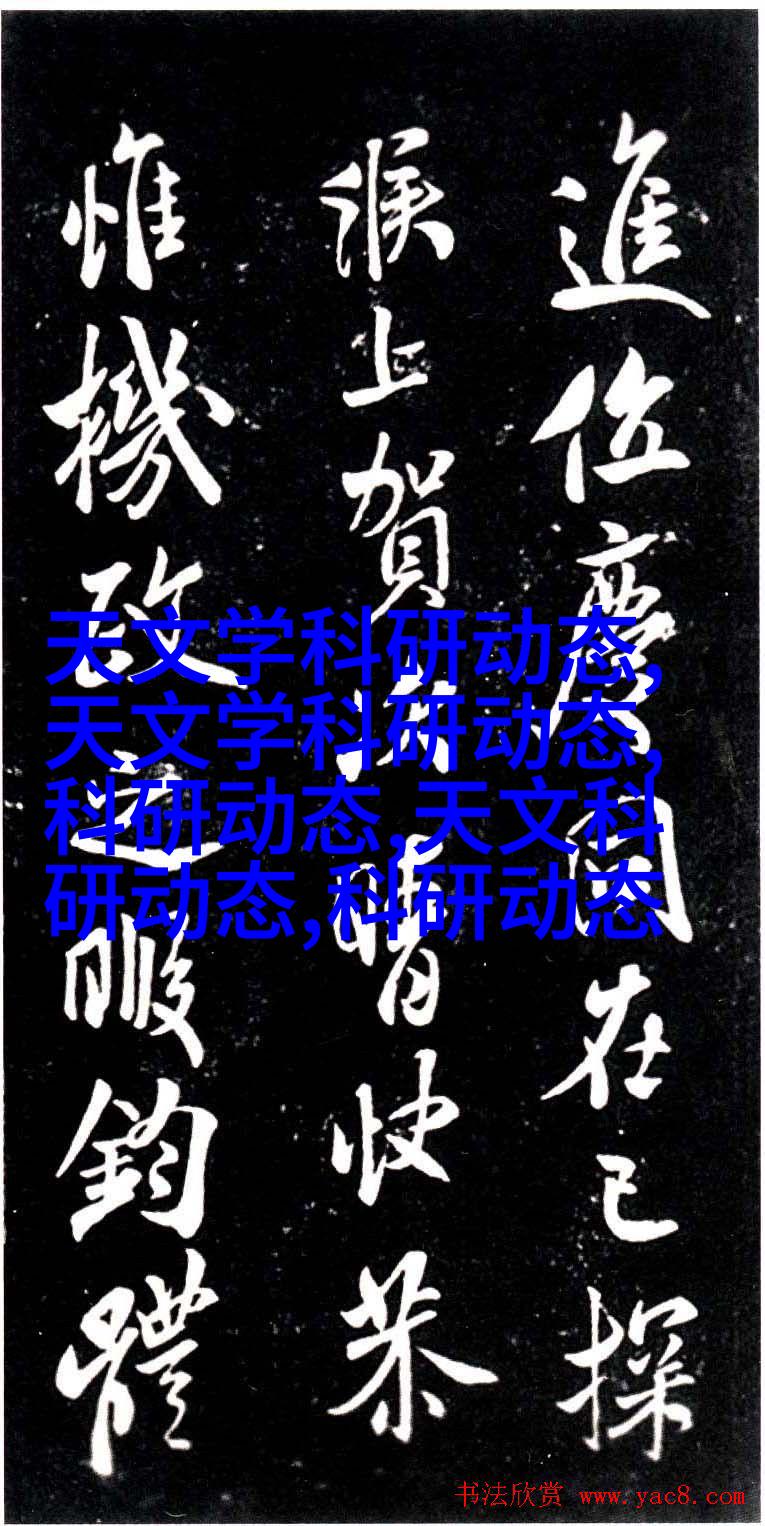 進位慶闰在已探
候上賀
晴快恭
惟機政之暇鈞體
天文学科研动态,
天文学科研动态,
科研动态,天文科
研动态,科研动态
书法欣赏 www.yac8.com